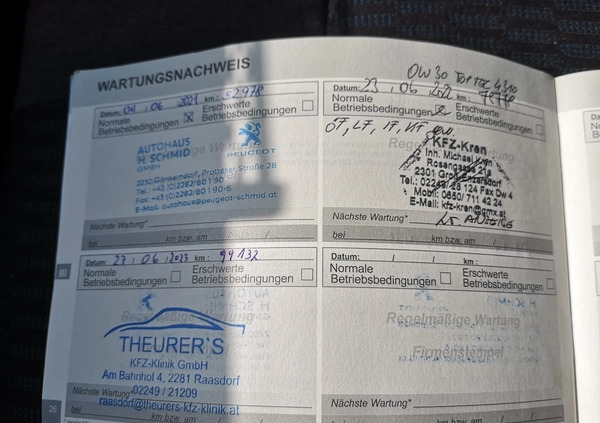 WARTUNGSNACHWEIS
Datum: 04 / 06 / 2021 km: 52978
Normale Betriebsbedingungen ☒ Erschwerte Betriebsbedingungen ☐
AUTOHAUS
H. SCHMID
GMBH
PEUGEOT
2230 Gänserndorf, Protteser Straße 28
Tel.: +43 (0)2282/80 1 90
Fax: +43 (0)2282/80 190-6
E-Mail: autohaus@peugeot-schmid.at
Nächste Wartung*
bei km bzw. am / /
OW 30 TOPTEC 4310
Datum: 23 / 06 / 2022 km:
Normale Betriebsbedingungen ☒ Erschwerte Betriebsbedingungen ☐
ÖF, LF, IF,
KFZ-Kren
Inh. Michael Kren
Rosengasse 21a
2301
Tel.: 02249/28 124 Fax Dw 4
Mobil: 0650/711 42 24
E-Mail: kfz-kren@gmx.at
Nächste Wartung* lt. ANZEIGE
bei km bzw. am / /
Datum: 27 / 06 / 2023 km: 99132
Normale Betriebsbedingungen ☐ Erschwerte Betriebsbedingungen ☐
Regelmäßige Wartung
THEURER'S
KFZ-Klinik GmbH
Am Bahnhof 4, 2281 Raasdorf
02249 / 21209
Nächste Wartung*
raasdorf@theurers-kfz-klinik.at
km bzw. am / /
Datum: / / km:
Normale Betriebsbedingungen ☐ Erschwerte Betriebsbedingungen ☐
Regelmäßige Wartung
Firmenstempel
Nächste Wartung*
bei km bzw. am / /
26